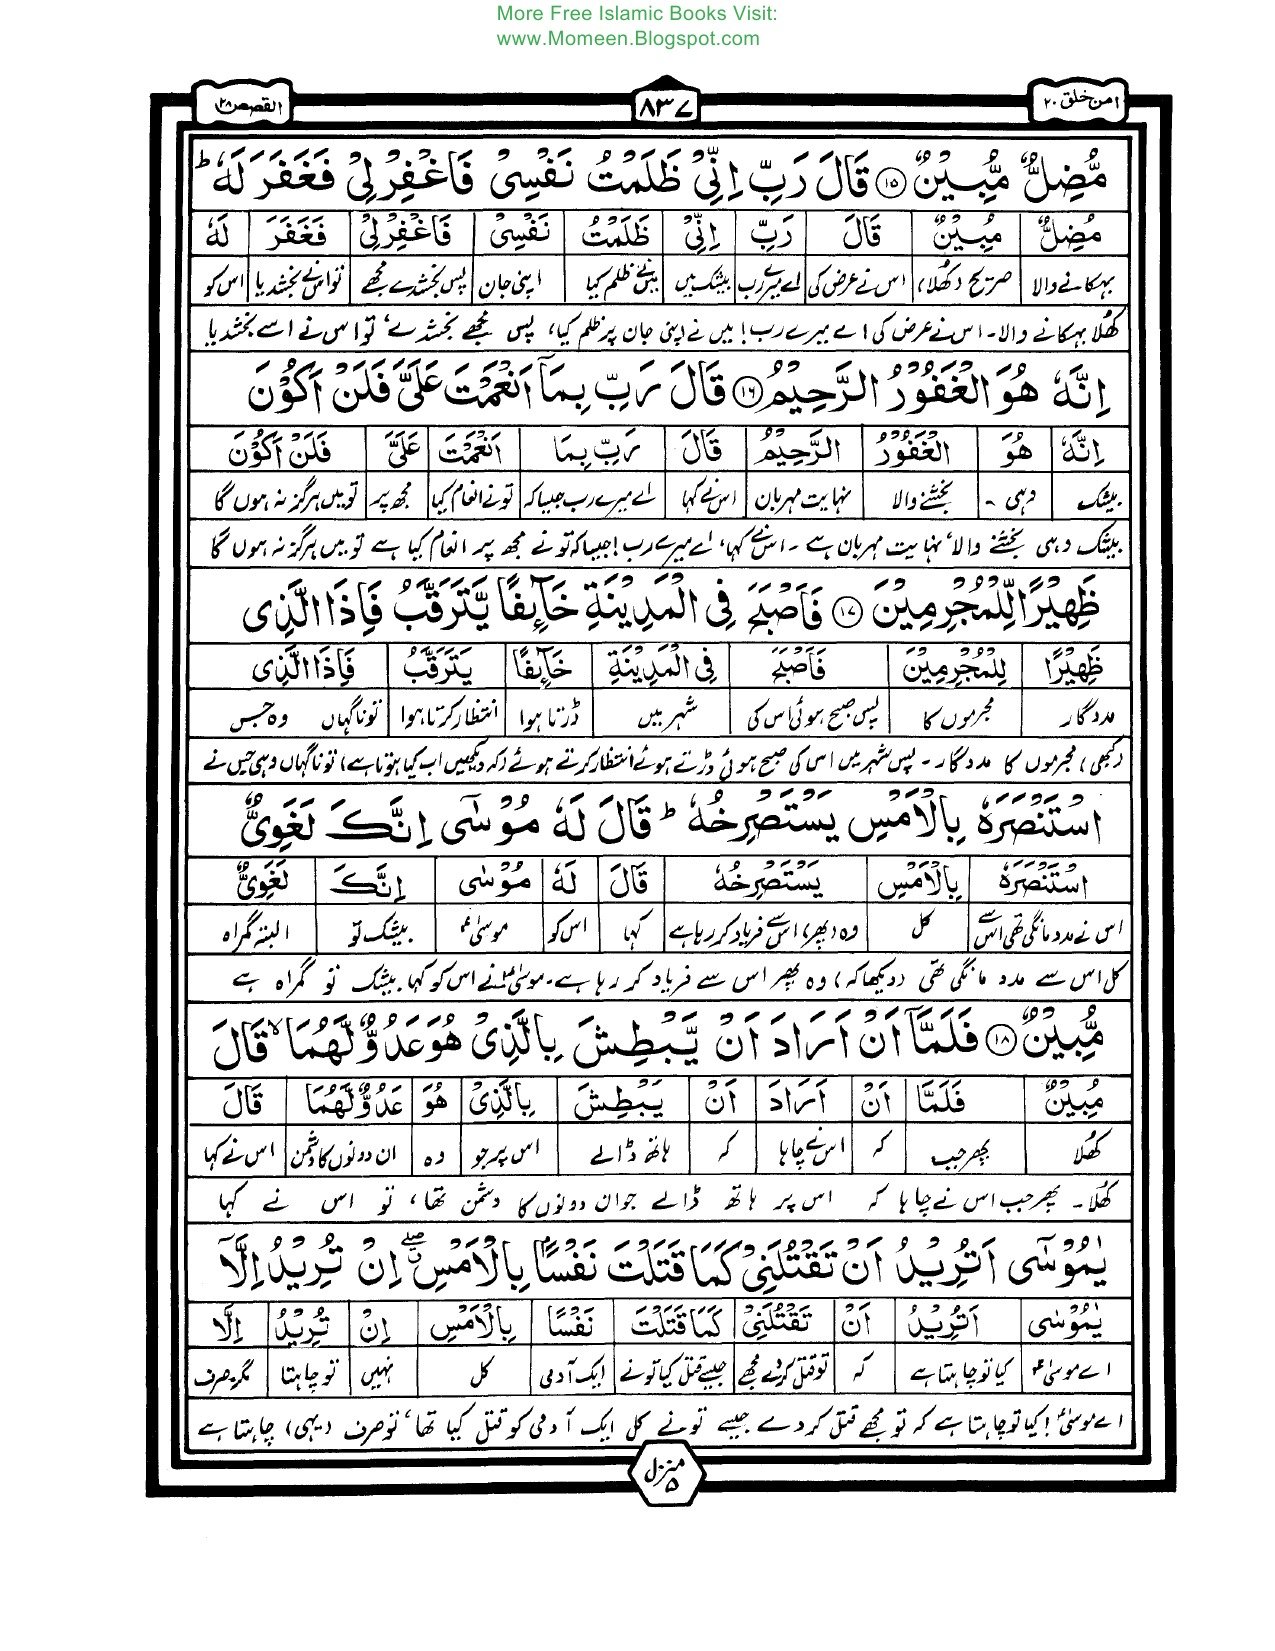 More Free Islamic Books Visit:
www.Momeen.Blogspot.com
امن خلق ۲۰
۸۳۷
القصص ۲۸
مُّضِلٌّ مُّبِيْنٌ ⑮ قَالَ رَبِّ اِنِّىْ ظَلَمْتُ نَفْسِىْ فَاغْفِرْلِىْ فَغَفَرَ لَهٗ ؕ
مُضِلٌّ مُبِيْنٌ قَالَ رَبِّ اِنِّىْ ظَلَمْتُ نَفْسِىْ فَاغْفِرْلِىْ فَغَفَرَ لَهٗ
بہکانے والا صریح (کھلا) اس نے عرض کی اے میرے رب بیشک میں میں نے ظلم کیا اپنی جان پس بخشدے مجھے تو اس نے بخشدیا اس کو
کُھلا بہکانے والا۔ اس نے عرض کی اے میرے رب! میں نے اپنی جان پر ظلم کیا، پس مجھے بخشدے، تو اس نے اسے بخشدیا
اِنَّهٗ هُوَ الْغَفُوْرُ الرَّحِيْمُ ⑯ قَالَ رَبِّ بِمَاۤ اَنْعَمْتَ عَلَىَّ فَلَنْ اَكُوْنَ
اِنَّهٗ هُوَ الْغَفُوْرُ الرَّحِيْمُ قَالَ رَبِّ بِمَا اَنْعَمْتَ عَلَىَّ فَلَنْ اَكُوْنَ
بیشک وہی۔ بخشنے والا نہایت مہربان اس نے کہا اے میرے رب جیسا کہ تو نے انعام کیا مجھ پر تو میں ہرگز نہ ہوں گا
بیشک وہی بخشنے والا، نہایت مہربان ہے۔ اس نے کہا، اے میرے رب! جیسا کہ تو نے مجھ پر انعام کیا ہے تو میں ہرگز نہ ہوں گا
ظَهِيْرًا لِّلْمُجْرِمِيْنَ ⑰ فَاَصْبَحَ فِى الْمَدِيْنَةِ خَآئِفًا يَّتَرَقَّبُ فَاِذَا الَّذِى
ظَهِيْرًا لِلْمُجْرِمِيْنَ فَاَصْبَحَ فِى الْمَدِيْنَةِ خَآئِفًا يَتَرَقَّبُ فَاِذَا الَّذِى
مددگار مجرموں کا پس صبح ہوئی اس کی شہر میں ڈرتا ہوا انتظار کرتا ہوا تو ناگہاں وہ جس
(کبھی) مجرموں کا مددگار۔ پس شہر میں اس کی صبح ہوئی ڈرتے ہوئے انتظار کرتے ہوئے (کہ دیکھیں اب کیا ہوتا ہے) تو ناگہاں وہی جس نے
اسْتَنْصَرَهٗ بِالْاَمْسِ يَسْتَصْرِخُهٗ ؕ قَالَ لَهٗ مُوْسٰٓى اِنَّكَ لَغَوِىٌّ
اسْتَنْصَرَهٗ بِالْاَمْسِ يَسْتَصْرِخُهٗ قَالَ لَهٗ مُوْسٰى اِنَّكَ لَغَوِىٌّ
اس نے مدد مانگی تھی اس سے کل وہ (پھر) اس سے فریاد کر رہا ہے کہا اس کو موسیٰؑ بیشک تو البتہ گمراہ
کل اس سے مدد مانگی تھی (دیکھا کہ) وہ پھر اس سے فریاد کر رہا ہے۔ موسیٰؑ نے اس کو کہا۔ بیشک تو گمراہ ہے
مُّبِيْنٌ ⑱ فَلَمَّاۤ اَنْ اَرَادَ اَنْ يَّبْطِشَ بِالَّذِىْ هُوَ عَدُوٌّ لَّهُمَا ۙ قَالَ
مُبِيْنٌ فَلَمَّا اَنْ اَرَادَ اَنْ يَبْطِشَ بِالَّذِىْ هُوَ عَدُوٌّ لَّهُمَا قَالَ
کُھلا پھر جب کہ اس نے چاہا کہ ہاتھ ڈالے اس پر جو وہ ان دونوں کا دشمن اس نے کہا
کُھلا۔ پھر جب اس نے چاہا کہ اس پر ہاتھ ڈالے جو ان دونوں کا دشمن تھا، تو اس نے کہا
يٰمُوْسٰٓى اَتُرِيْدُ اَنْ تَقْتُلَنِىْ كَمَا قَتَلْتَ نَفْسًۢا بِالْاَمْسِ ۖ اِنْ تُرِيْدُ اِلَّاۤ
يٰمُوْسٰى اَتُرِيْدُ اَنْ تَقْتُلَنِىْ كَمَا قَتَلْتَ نَفْسًا بِالْاَمْسِ اِنْ تُرِيْدُ اِلَّا
اے موسیٰؑ کیا تو چاہتا ہے کہ تو قتل کر دے مجھے جیسے قتل کیا تو نے ایک آدمی کل نہیں تو چاہتا مگر صرف
اے موسیٰؑ! کیا تو چاہتا ہے کہ تو مجھے قتل کر دے جیسے تو نے کل ایک آدمی کو قتل کیا تھا، تو صرف (یہی) چاہتا ہے
منزل ۵